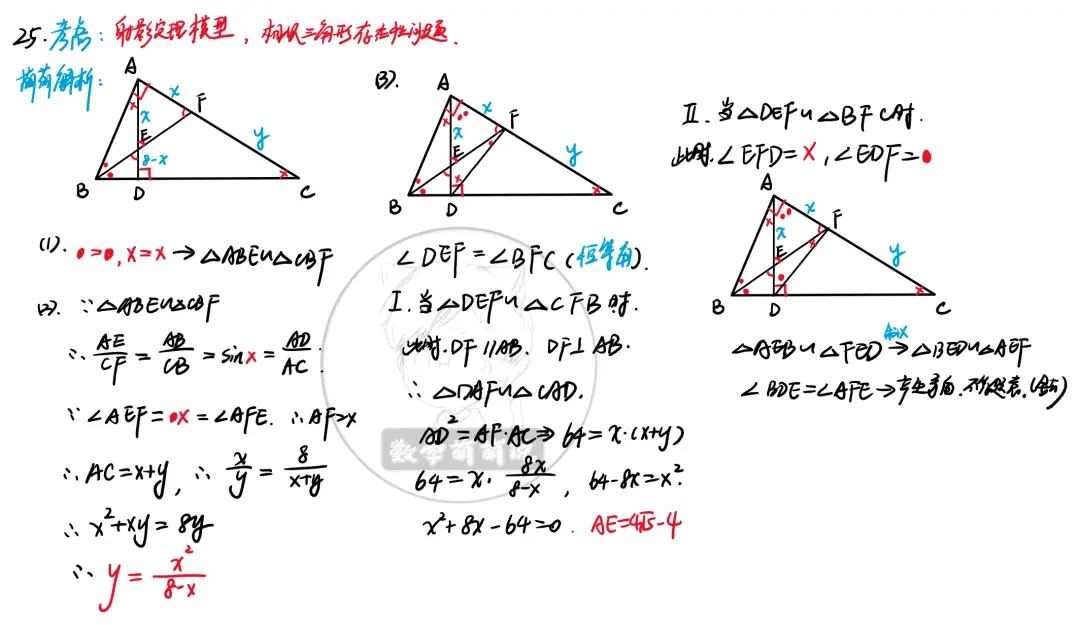 25. 考点: 射影定理模型, 相似三角形存在性问题.
萌萌解析:
A
F
E
B
D
C
x
x
8-x
y
(1). •=•, x=x → △ABE∽△CBF
(2). ∵△ABE∽△CBF
∴ AE/CF = AB/CB = sin x = AD/AC.
∵∠AEF=•x=∠AFE. ∴AF=x
∴AC=x+y, ∴ x/y = 8/(x+y)
∴ x²+xy=8y
∴ y = x²/(8-x)
(3).
A
F
E
B
D
C
x
x
y
∠DEF=∠BFC (恒等角).
Ⅰ. 当△DEF∽△CFB时.
此时. DF∥AB. DF⊥AB.
∴ △DAF∽△CAD.
AD²=AF·AC⇒64=x·(x+y)
64=x· 8x/(8-x), 64-8x=x².
x²+8x-64=0. AE=4√5-4
Ⅱ. 当△DEF∽△BFC时.
此时. ∠EFD=x, ∠EDF=•
A
F
E
B
D
C
x
x
y
△AEB∽△FED → △BED∽△AEF
∠BDE=∠AFE→产生矛盾.
数学萌萌